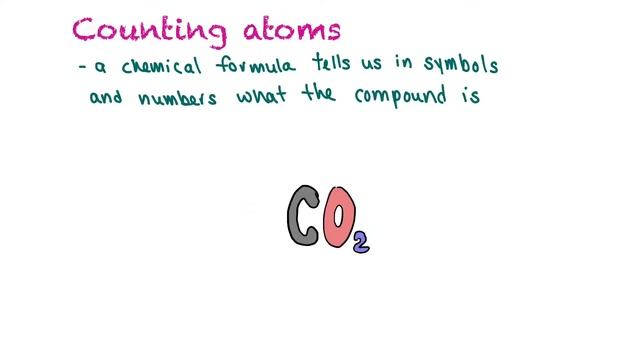 Counting atoms
- a chemical formula tells us in symbols
and numbers what the compound is
CO₂